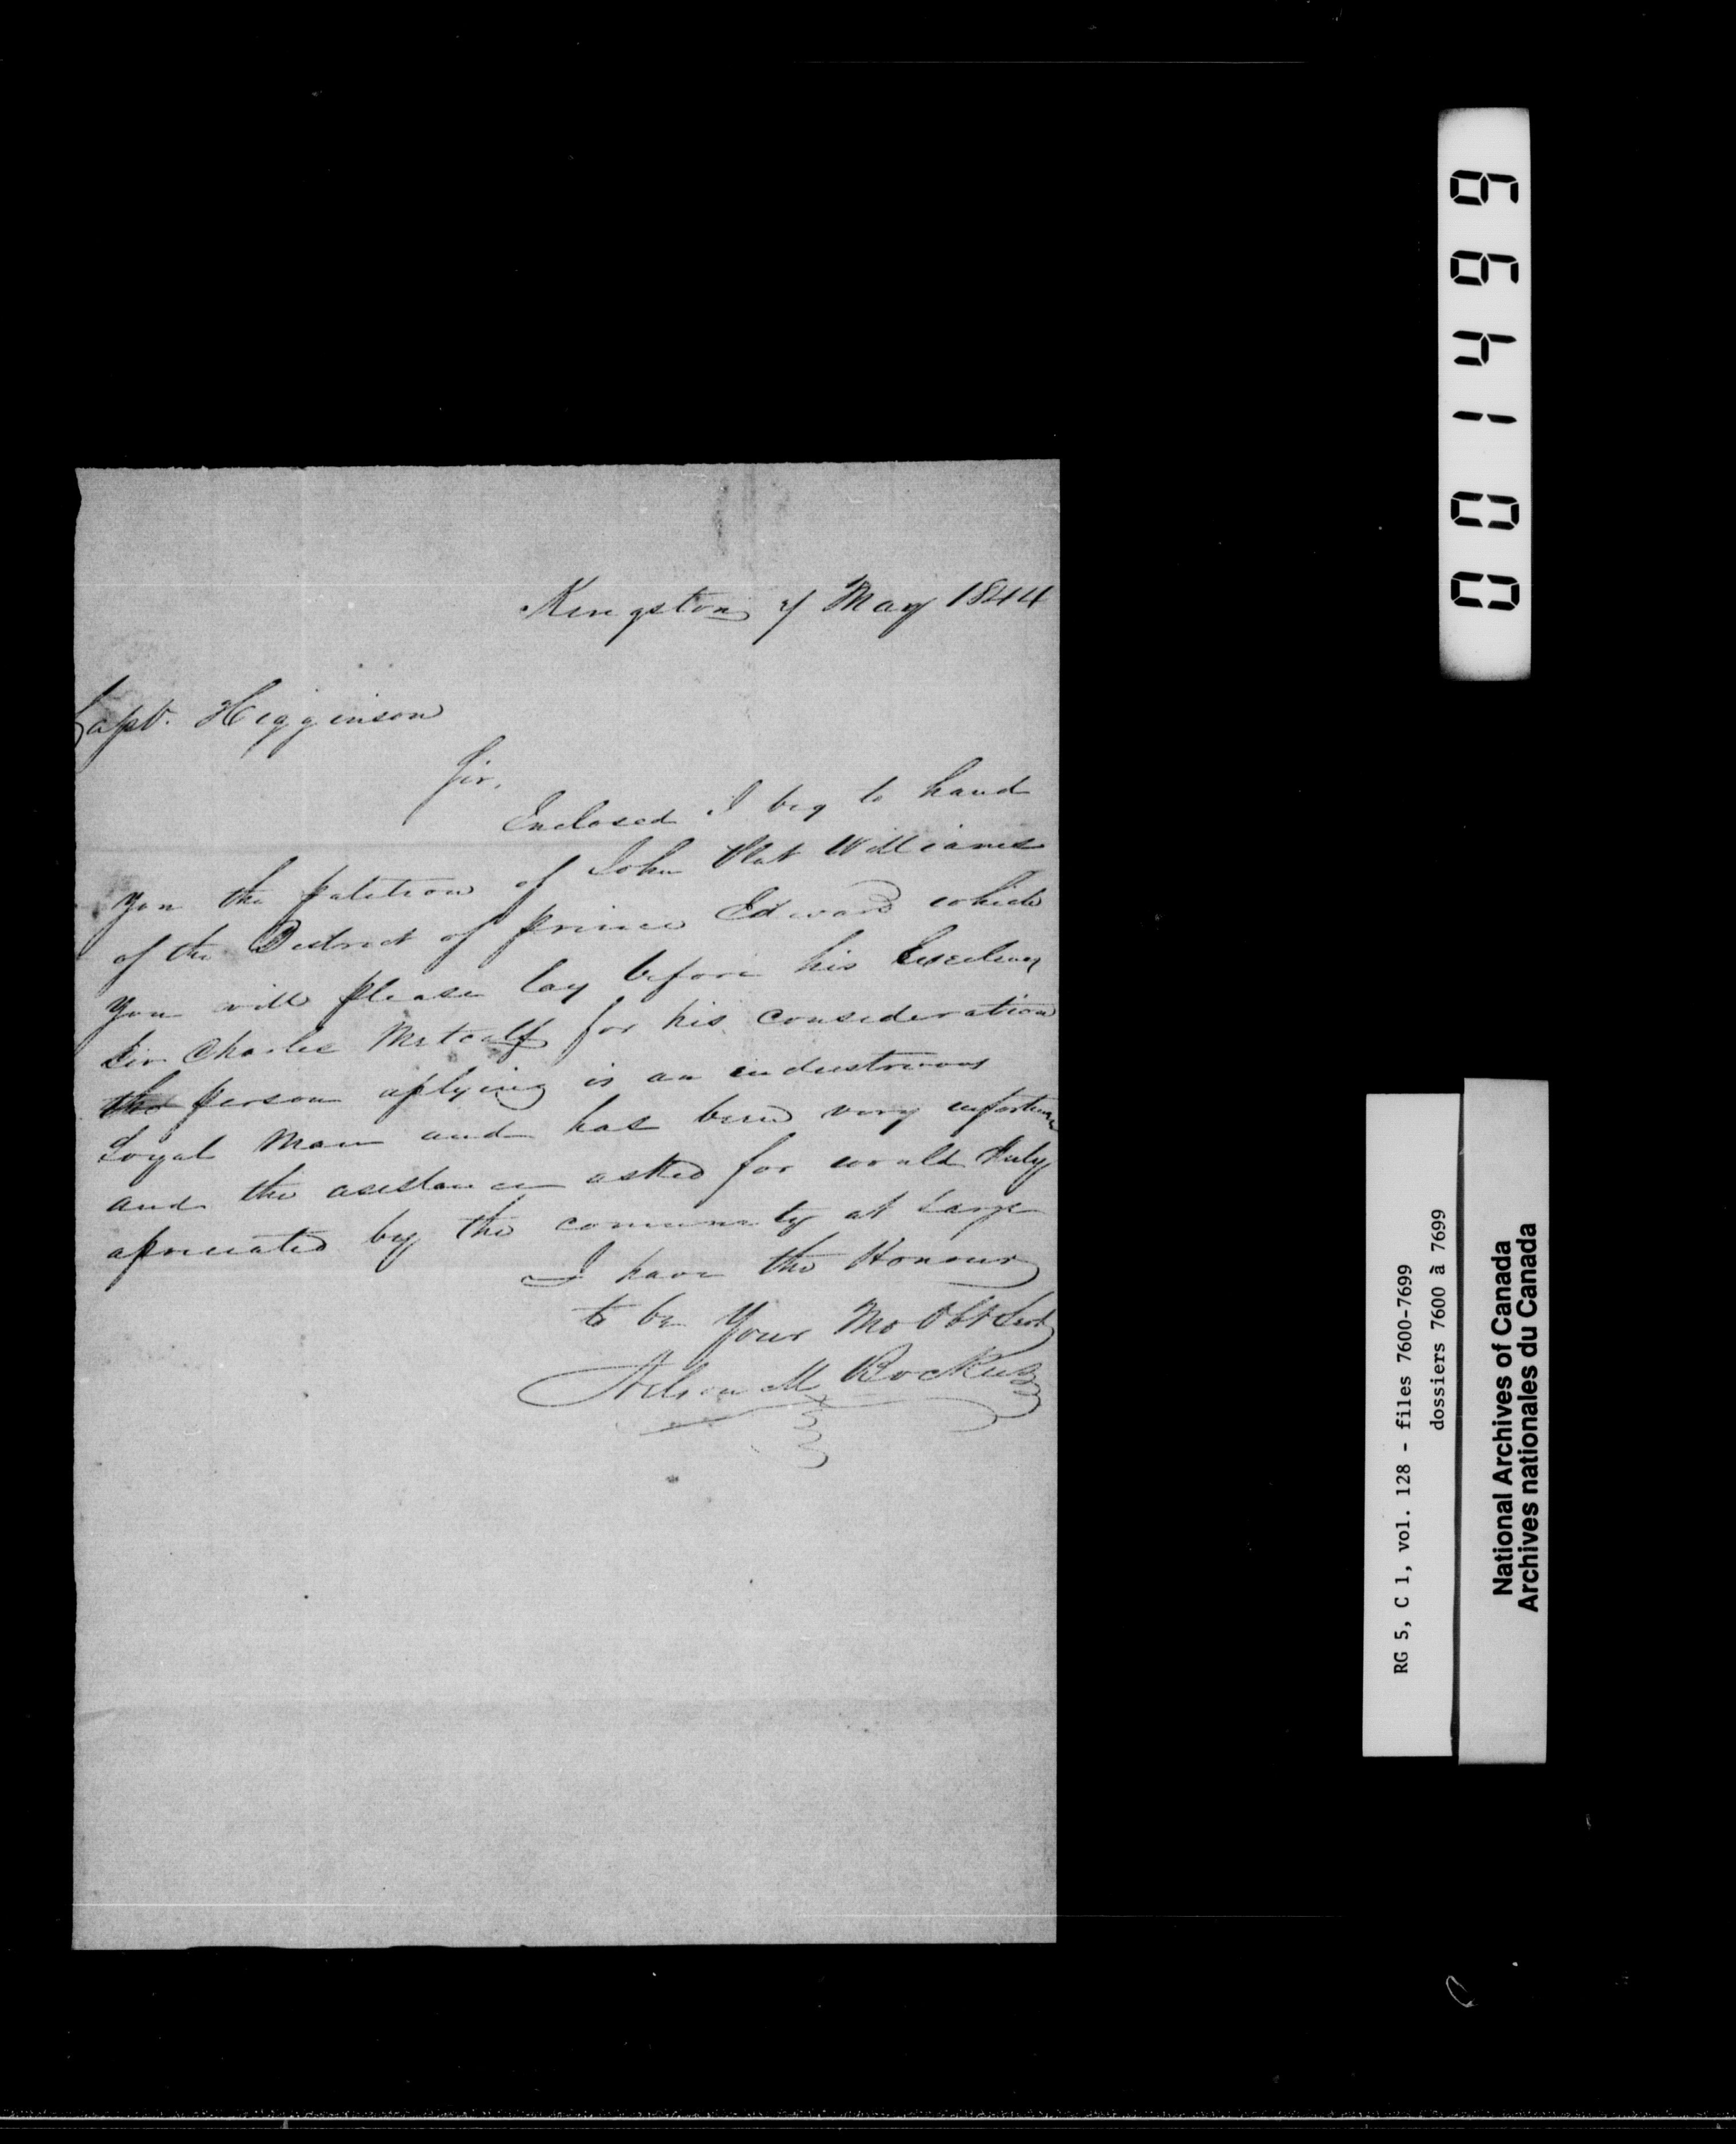 Kingston 7 May 1844
Capt. Higginson
Sir,
Enclosed I beg to hand
you the patition of John Plat Williams
of the District of prince Edward which
you will please lay before his Excelency
Sir Charles Metcalf for his consideration
the person aplying is an industrious
Loyal Man and has been very unfortunate
and the asistance asked for would Duly
apreciated by the community at Large
I have the Honour
to be Your Mo Obt Sert
Nelson M Bockus
001499
RG 5, C 1, vol. 128 - files 7600-7699
dossiers 7600 à 7699
National Archives of Canada
Archives nationales du Canada